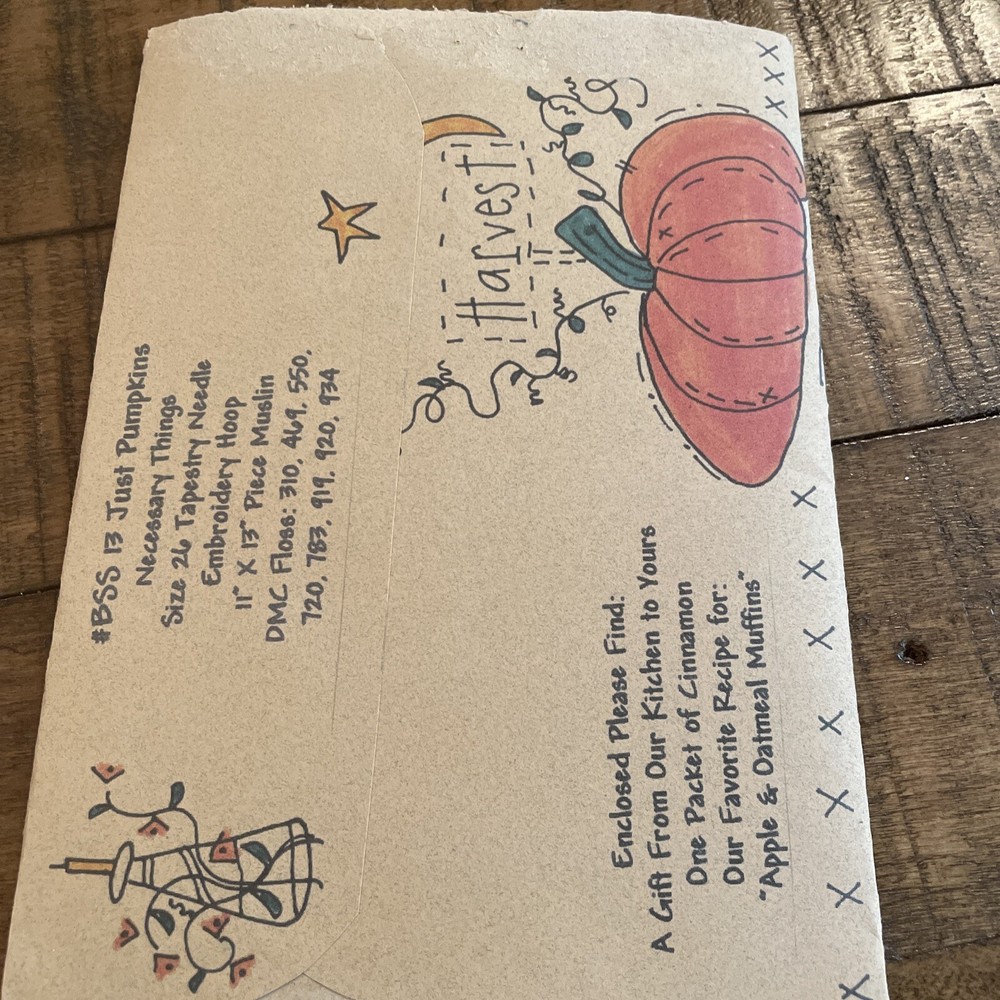 #BSS 13 Just Pumpkins
Necessary Things
Size 26 Tapestry Needle
Embroidery Hoop
11" X 13" Piece Muslin
DMC Floss: 310, 469, 550,
720, 783, 919, 920, 934
Harvest
Enclosed Please Find:
A Gift From Our Kitchen to Yours
One Packet of Cinnamon
Our Favorite Recipe for:
"Apple & Oatmeal Muffins"